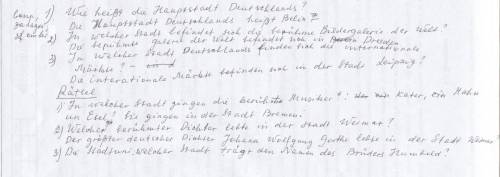 1) Wie heißt die Hauptstadt Deutschlands?
Die Hauptstadt Deutschlands heißt Belin
2) In welcher Stadt befindet sich die berühmte Bildergalerie der Welt?
Die berühmte Galerie der Welt befindet sich in Dresden
3) In welcher Stadt Deutschlands finden sich die internationale
Märchte? –
Die interationale Märchte befinden sich in der Stadt Leipzig?
Rätsel
1) In welcher Stadt gingen die berühmte Musiker? Kater, ein Hahn
un Esel? Sie gingen in der Stadt Bremen.
2) Welcher berühmter Dichter lebte in der Stadt Weimar?
Der größter deutscher Dichter Johann Wolfgang Goethe lebte in der Stadt Weimar
3) Die Stadtuni welcher Stadt trägt den Namen des Brüders Humbold?